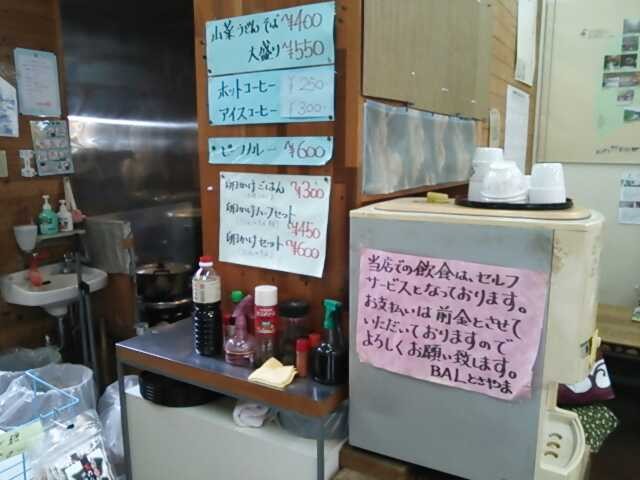 山菜うどんそば ¥400
大盛り ¥550
ホットコーヒー ¥250
アイスコーヒー ¥300
ビーフカレー ¥600
卵かけごはん ¥300
卵かけハーフセット
¥450
卵かけセット
¥600
当店での飲食は、セルフ
サービスとなっております。
お支払いは前金とさせて
いただいておりますので
よろしくお願い致します。
BALときやま